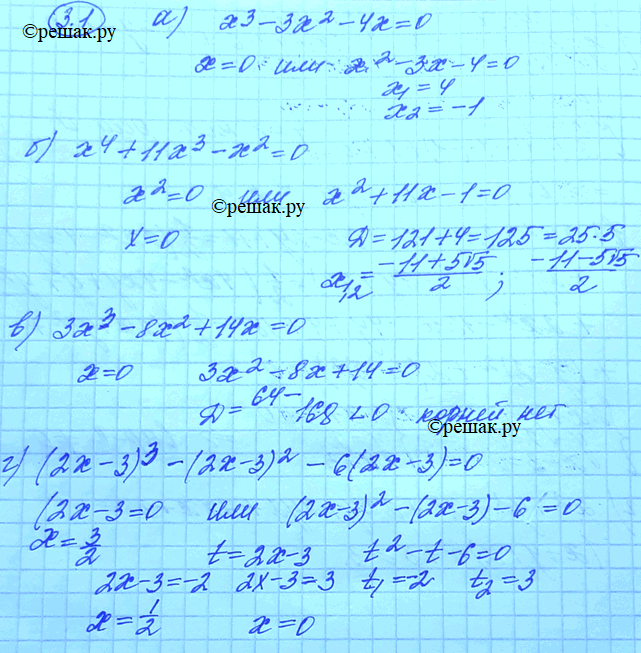 3.1 а) x³ - 3x² - 4x = 0
©решак.ру
x = 0 или x² - 3x - 4 = 0
x₁ = 4
x₂ = -1
б) x⁴ + 11x³ - x² = 0
x² = 0 или x² + 11x - 1 = 0
©решак.ру
x = 0 Д = 121 + 4 = 125 = 25·5
x₁,₂ = (-11+5√5)/2 ; (-11-5√5)/2
в) 3x³ - 8x² + 14x = 0
x = 0 3x² - 8x + 14 = 0
Д = 64 - 168 < 0 корней нет
©решак.ру
г) (2x-3)³ - (2x-3)² - 6(2x-3) = 0
(2x-3 = 0 или (2x-3)² - (2x-3) - 6 = 0
x = 3/2 t = 2x-3 t² - t - 6 = 0
2x-3 = -2 2x-3 = 3 t₁ = -2 t₂ = 3
x = 1/2 x = 0